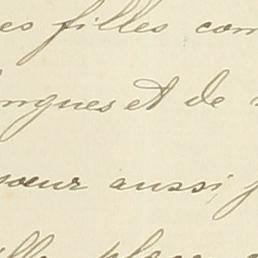 es filles com
ngues et de
soeur aussi, j
fill place